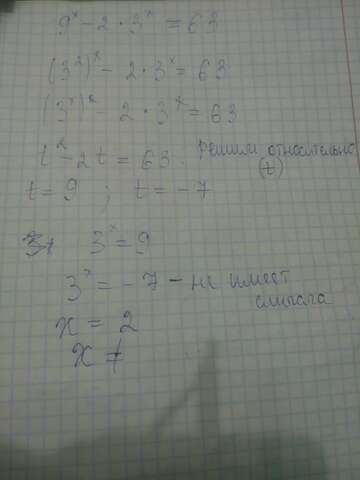 9ˣ - 2 · 3ˣ = 63
(3²)ˣ - 2 · 3ˣ = 63
(3ˣ)² - 2 · 3ˣ = 63
t² - 2t = 63. Решим относительно (t)
t = 9 ; t = -7
3ˣ = 9
3ˣ = -7 - не имеет смысла
x = 2
x ≠